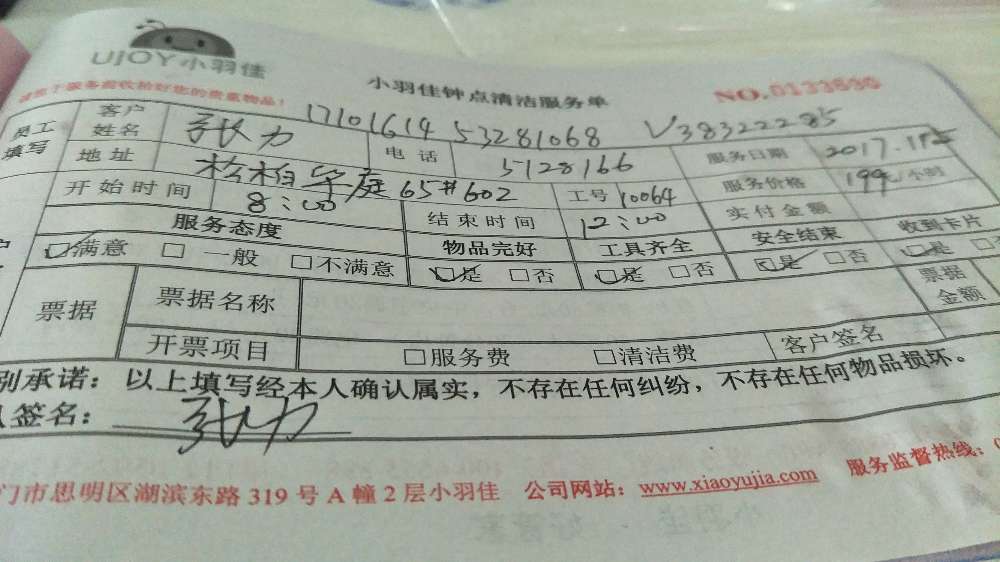 UJOY小羽佳
小羽佳钟点清洁服务单
NO.
服务前收拾好您的贵重物品!
员工填写 客户姓名 张力 17101614 53281068 V38322285
地址 松柏华庭65#602 电话 5128166 服务日期 2017.
开始时间 8:00 工号 10064 服务价格 199/小时
结束时间 12:00 实付金额
服务态度 物品完好 工具齐全 安全结束 收到卡片
☑满意 □一般 □不满意 ☑是 □否 ☑是 □否 ☑是 □否 ☑是
票据 票据名称 票据金额
开票项目 □服务费 □清洁费 客户签名
别承诺:以上填写经本人确认属实,不存在任何纠纷,不存在任何物品损坏。
签名: 张力
门市思明区湖滨东路319号A幢2层小羽佳 公司网站:www.xiaoyujia.com 服务监督热线: